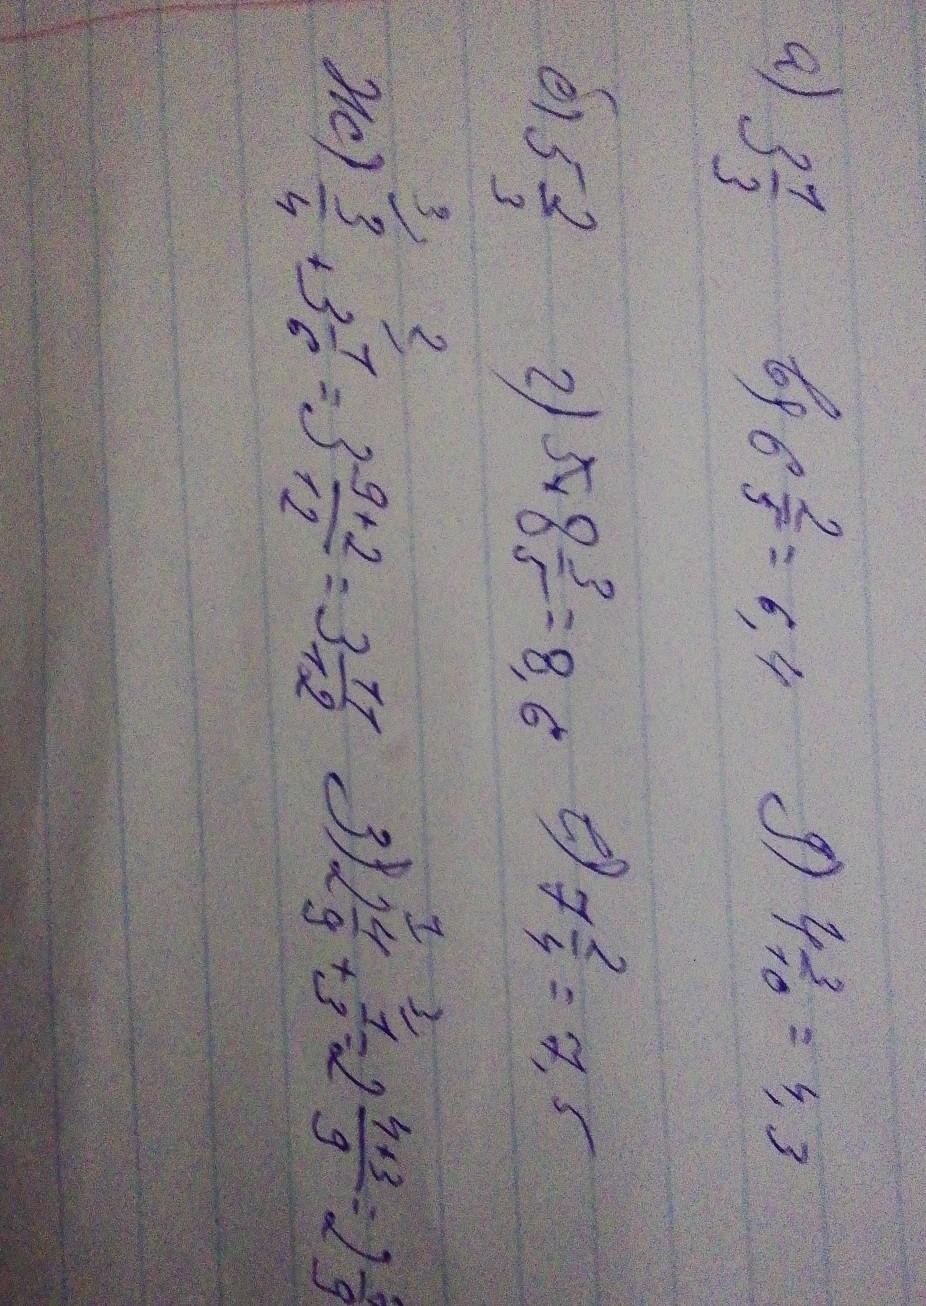 а) 3 1/3 в) 6 2/5 = 6,4 д) 4 3/10 = 4,3
б) 5 2/3 г) 8 3/5 = 8,6 е) 7 2/4 = 7,5
ж) 3/4 + 3 1/6 = 3 9+2/12 = 3 11/12 з) 2 4/9 + 1/3 = 2 4+3/9 = 2 /9